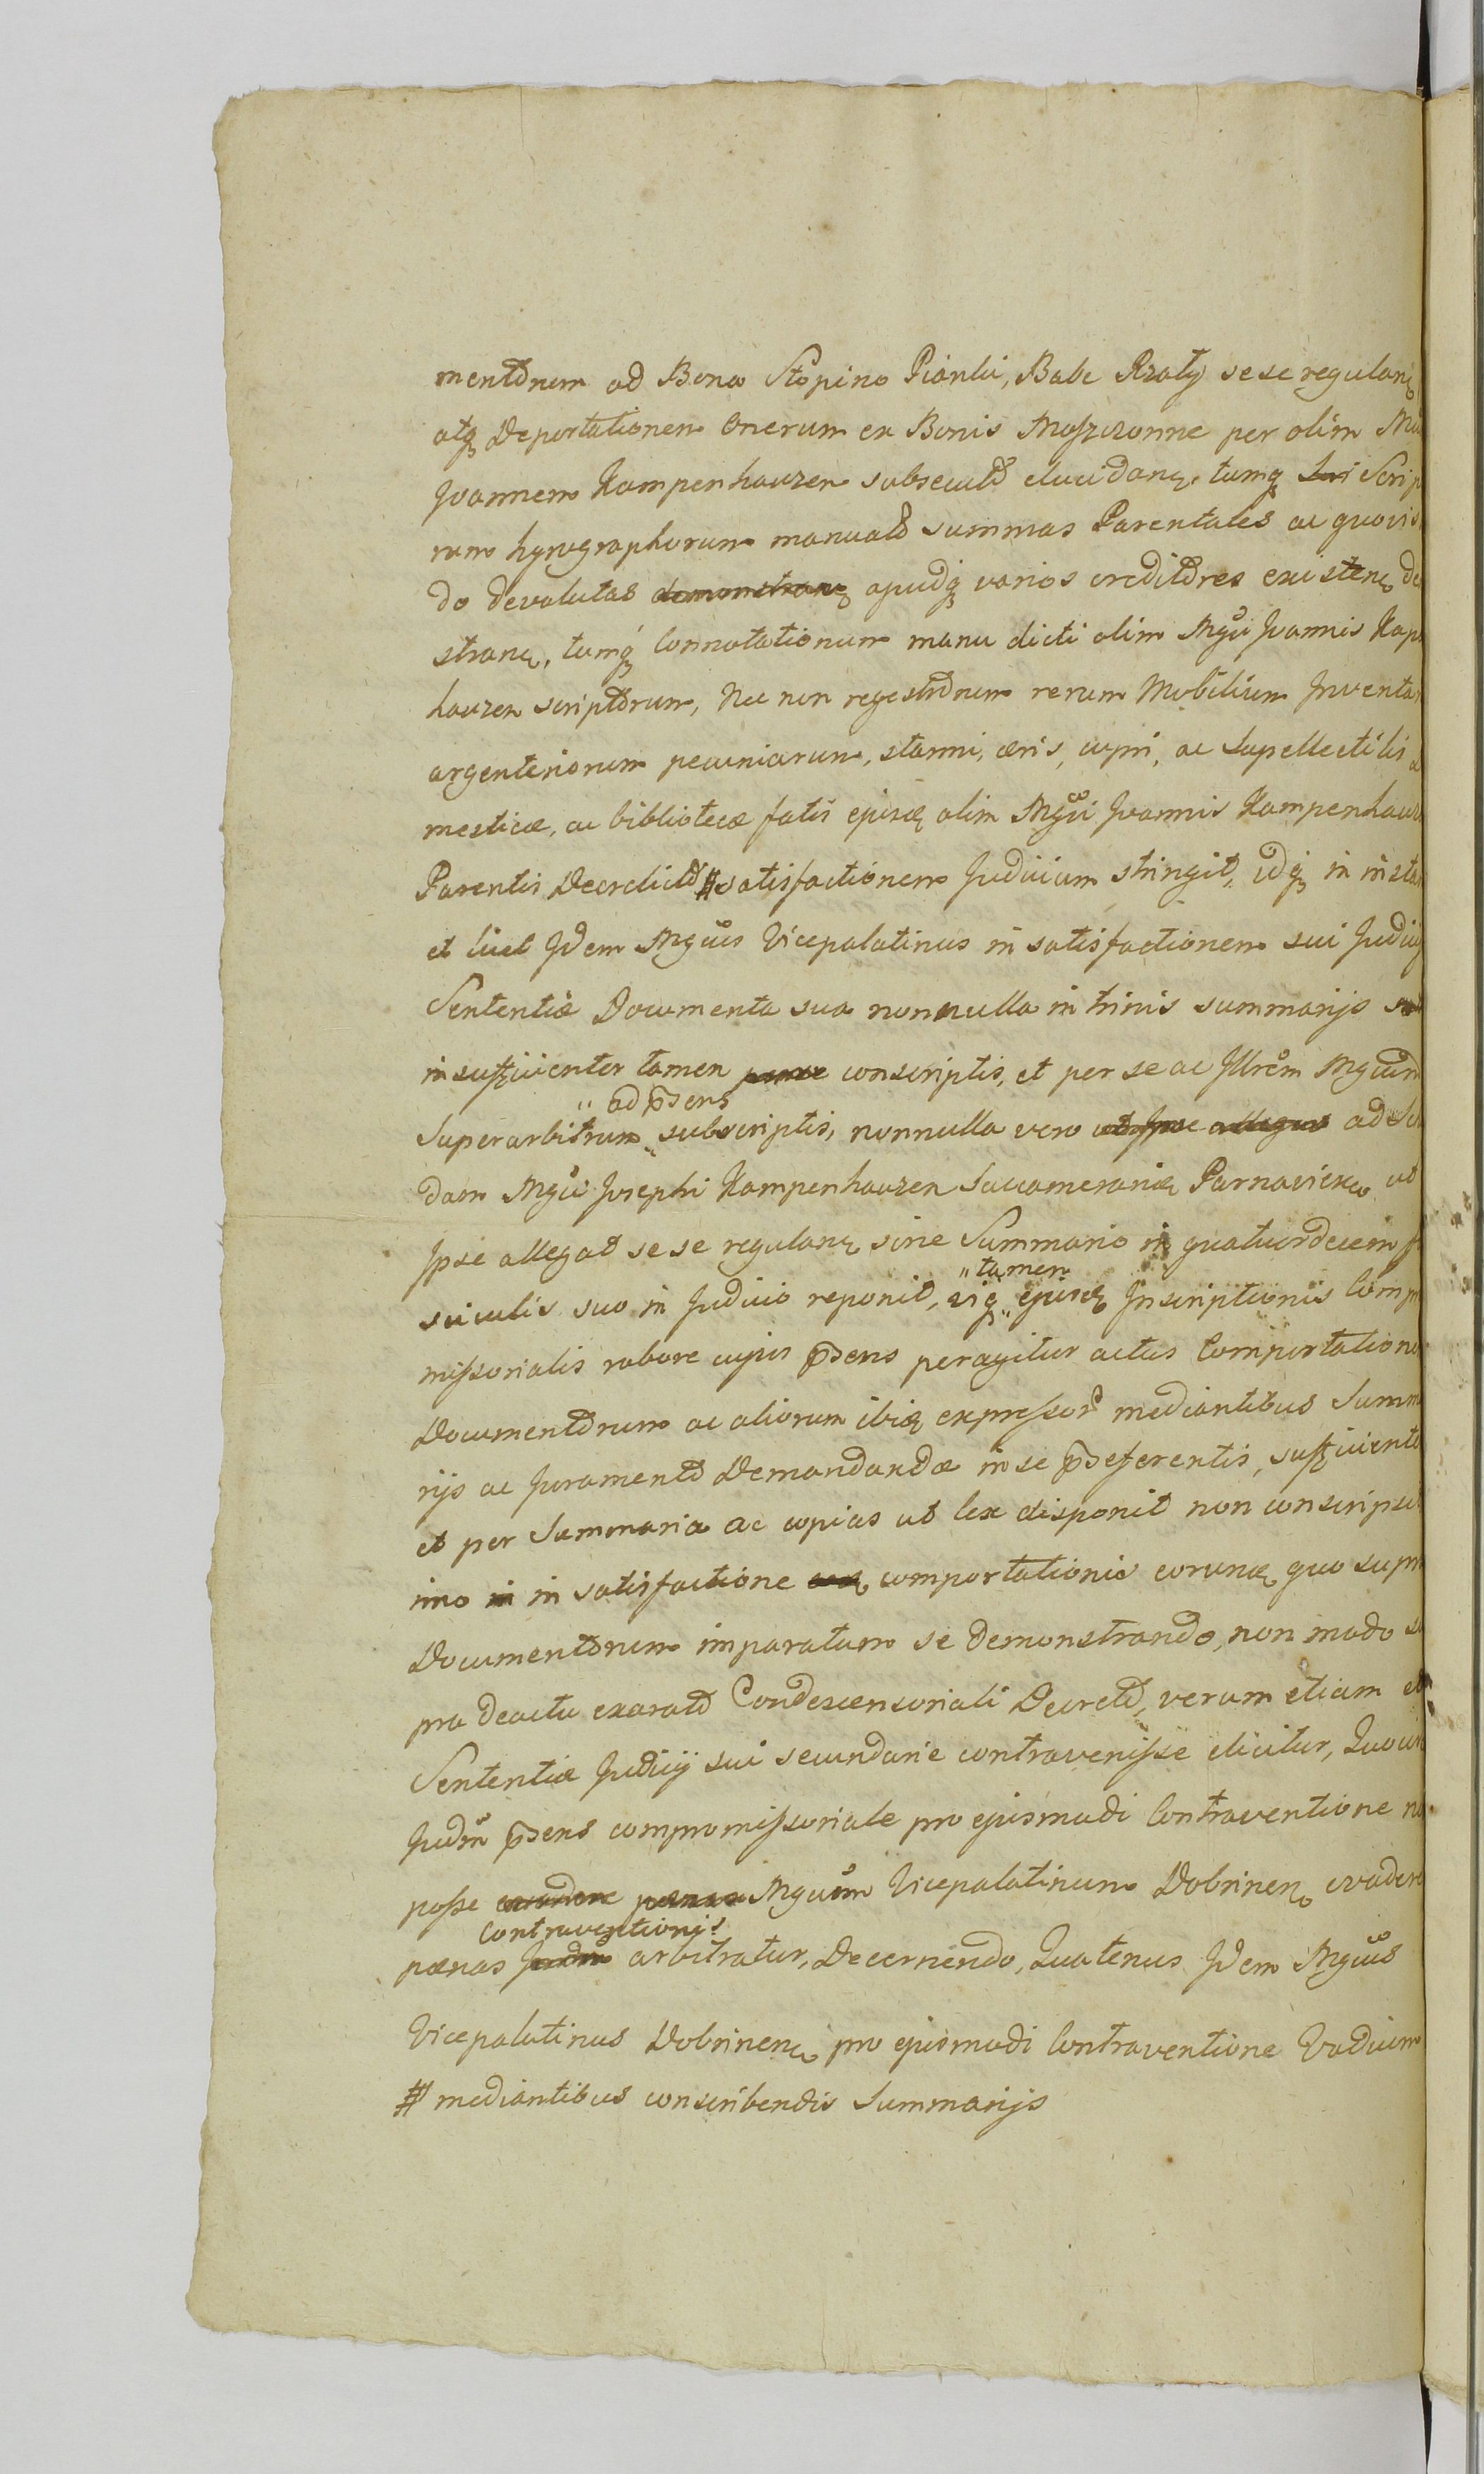 mentorum ad Bona Stopino Pianki, Babe Rzaty sese regulanę
atq Deportationem Onerum ex Bonis Moszczonne per olim
Joannem Kampenhauzen subsecutõ elucidanę, tumq Scrip
rum hyrographorum manualõ summas Parentales ac quovis
do devolutas demonstranę apudq varios creditores existenę de
stranę, tumq Connotationum manu dicti olim Mgci Joannis Kap
hauzen scriptorum, Nec non regestrorum rerum Mobilium Inventa
argenteriorum pecuniarum, stanni, æris, cupri, ac Supellectilis
mesticæ, ac bibliotecæ fatis ejusdę olim Mgci Joannis Kampenhauz
Parentis Derelictõ # satisfactionem Judicium stringit, idq in insta
et licet Idem Mgcus Vicepalatinus in satisfactionem sui Judicij
Sententiæ Documenta sua nonnulla in trinis summarijs
insufficienter tamen conscriptis, et per se ac Illrem Mgcum
" ad p̃sens
Superarbitrum " subscriptis, nonnulla vero ut Ipse allegat ad
dam Mgci Josephi Kampenhauzen Succamerariæ Parnavien ut
Ipse allegat sese regulanę sine Summario in quatuordecem f
" tamen
sciculis suo in Judicio reponit, viq " ejusdę Inscriptionis Comp
missorialis robore cujus p̃sens peragitur actus Comportation
Documentorum ac aliorum ibidę expressor mediantibus Summ
rijs ac Juramentõ Demandandæ in se p̃seferentis, sufficiente
et per Summaria ac copias ut lex disponit non conscripsit
imo in in satisfactione comportationis eorundę quo sup
Documentorum imparatum se demonstrando, non modo s
pra deactu exaratõ Condescensoriali Decretõ, verum etiam et
Sententiæ Judicij sui secundarie contravenisse elicitur, Quocir
Judm p̃sens compromissoriale pro ejusmodi Contraventione n
posse evadere pœnas Mgcum Vicepalatinum Dobrinenę evadere
Contraventionis
pœnas Judm arbitratur, Decernendo, Quatenus Idem Mgcus
Vicepalatinus Dobrinenę pro ejusmodi Contraventione Vadium
# mediantibus conscribendis Summarijs